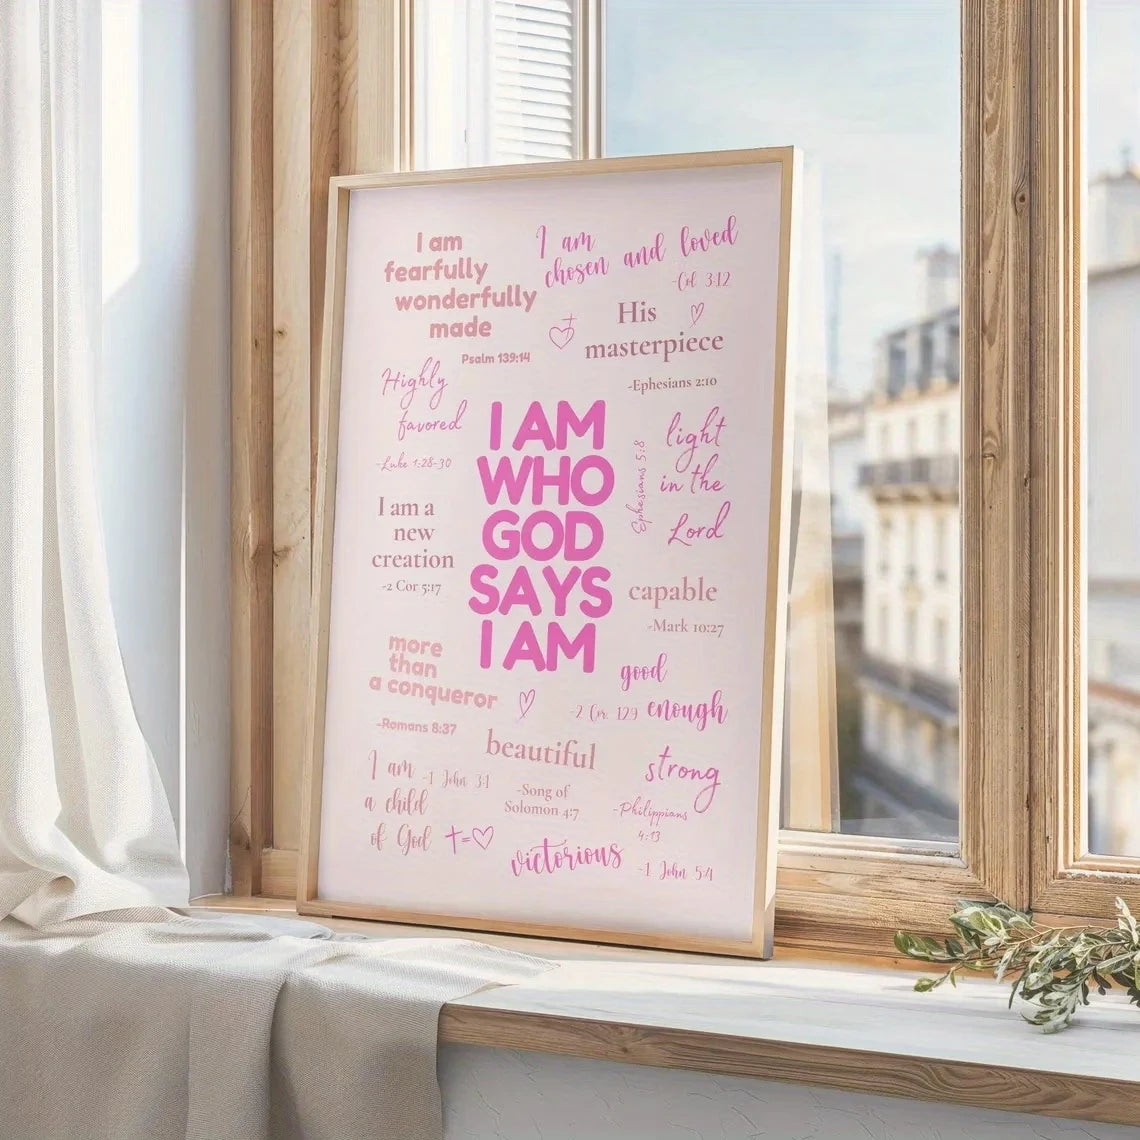 I am
fearfully
wonderfully
made
Psalm 139:14
I am
chosen and loved
-Col 3:12
His
masterpiece
-Ephesians 2:10
Highly
favored
-Luke 1:28-30
I AM
WHO
GOD
SAYS
I AM
light
in the
Lord
Ephesians 5:8
I am a
new
creation
-2 Cor 5:17
capable
-Mark 10:27
more
than
a conqueror
-Romans 8:37
good
enough
-2 Cor. 12:9
beautiful
-Song of
Solomon 4:7
strong
-Philippians
4:13
I am
a child
of God
-1 John 3:1
victorious
-1 John 5:4